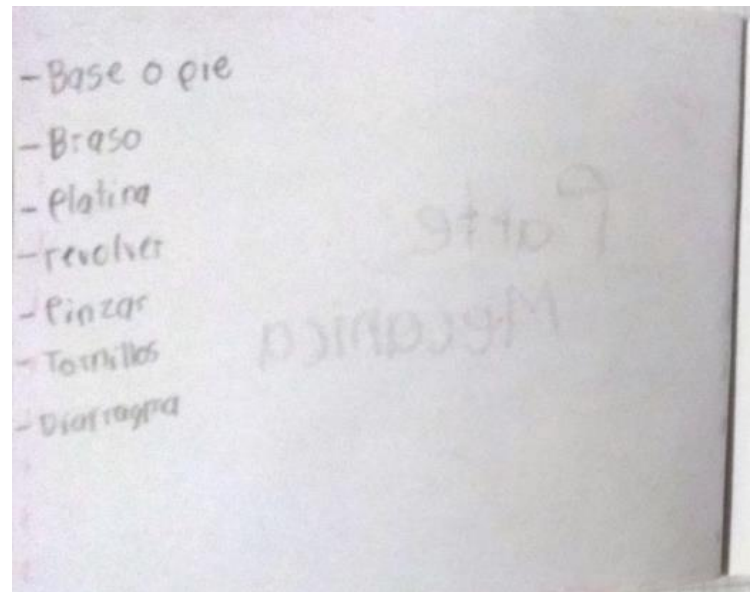 - Base o pie
- Braso
- Platina
- revolver
- Pinzas
- Tornillos
- Diafragma
Parte
Mecanica